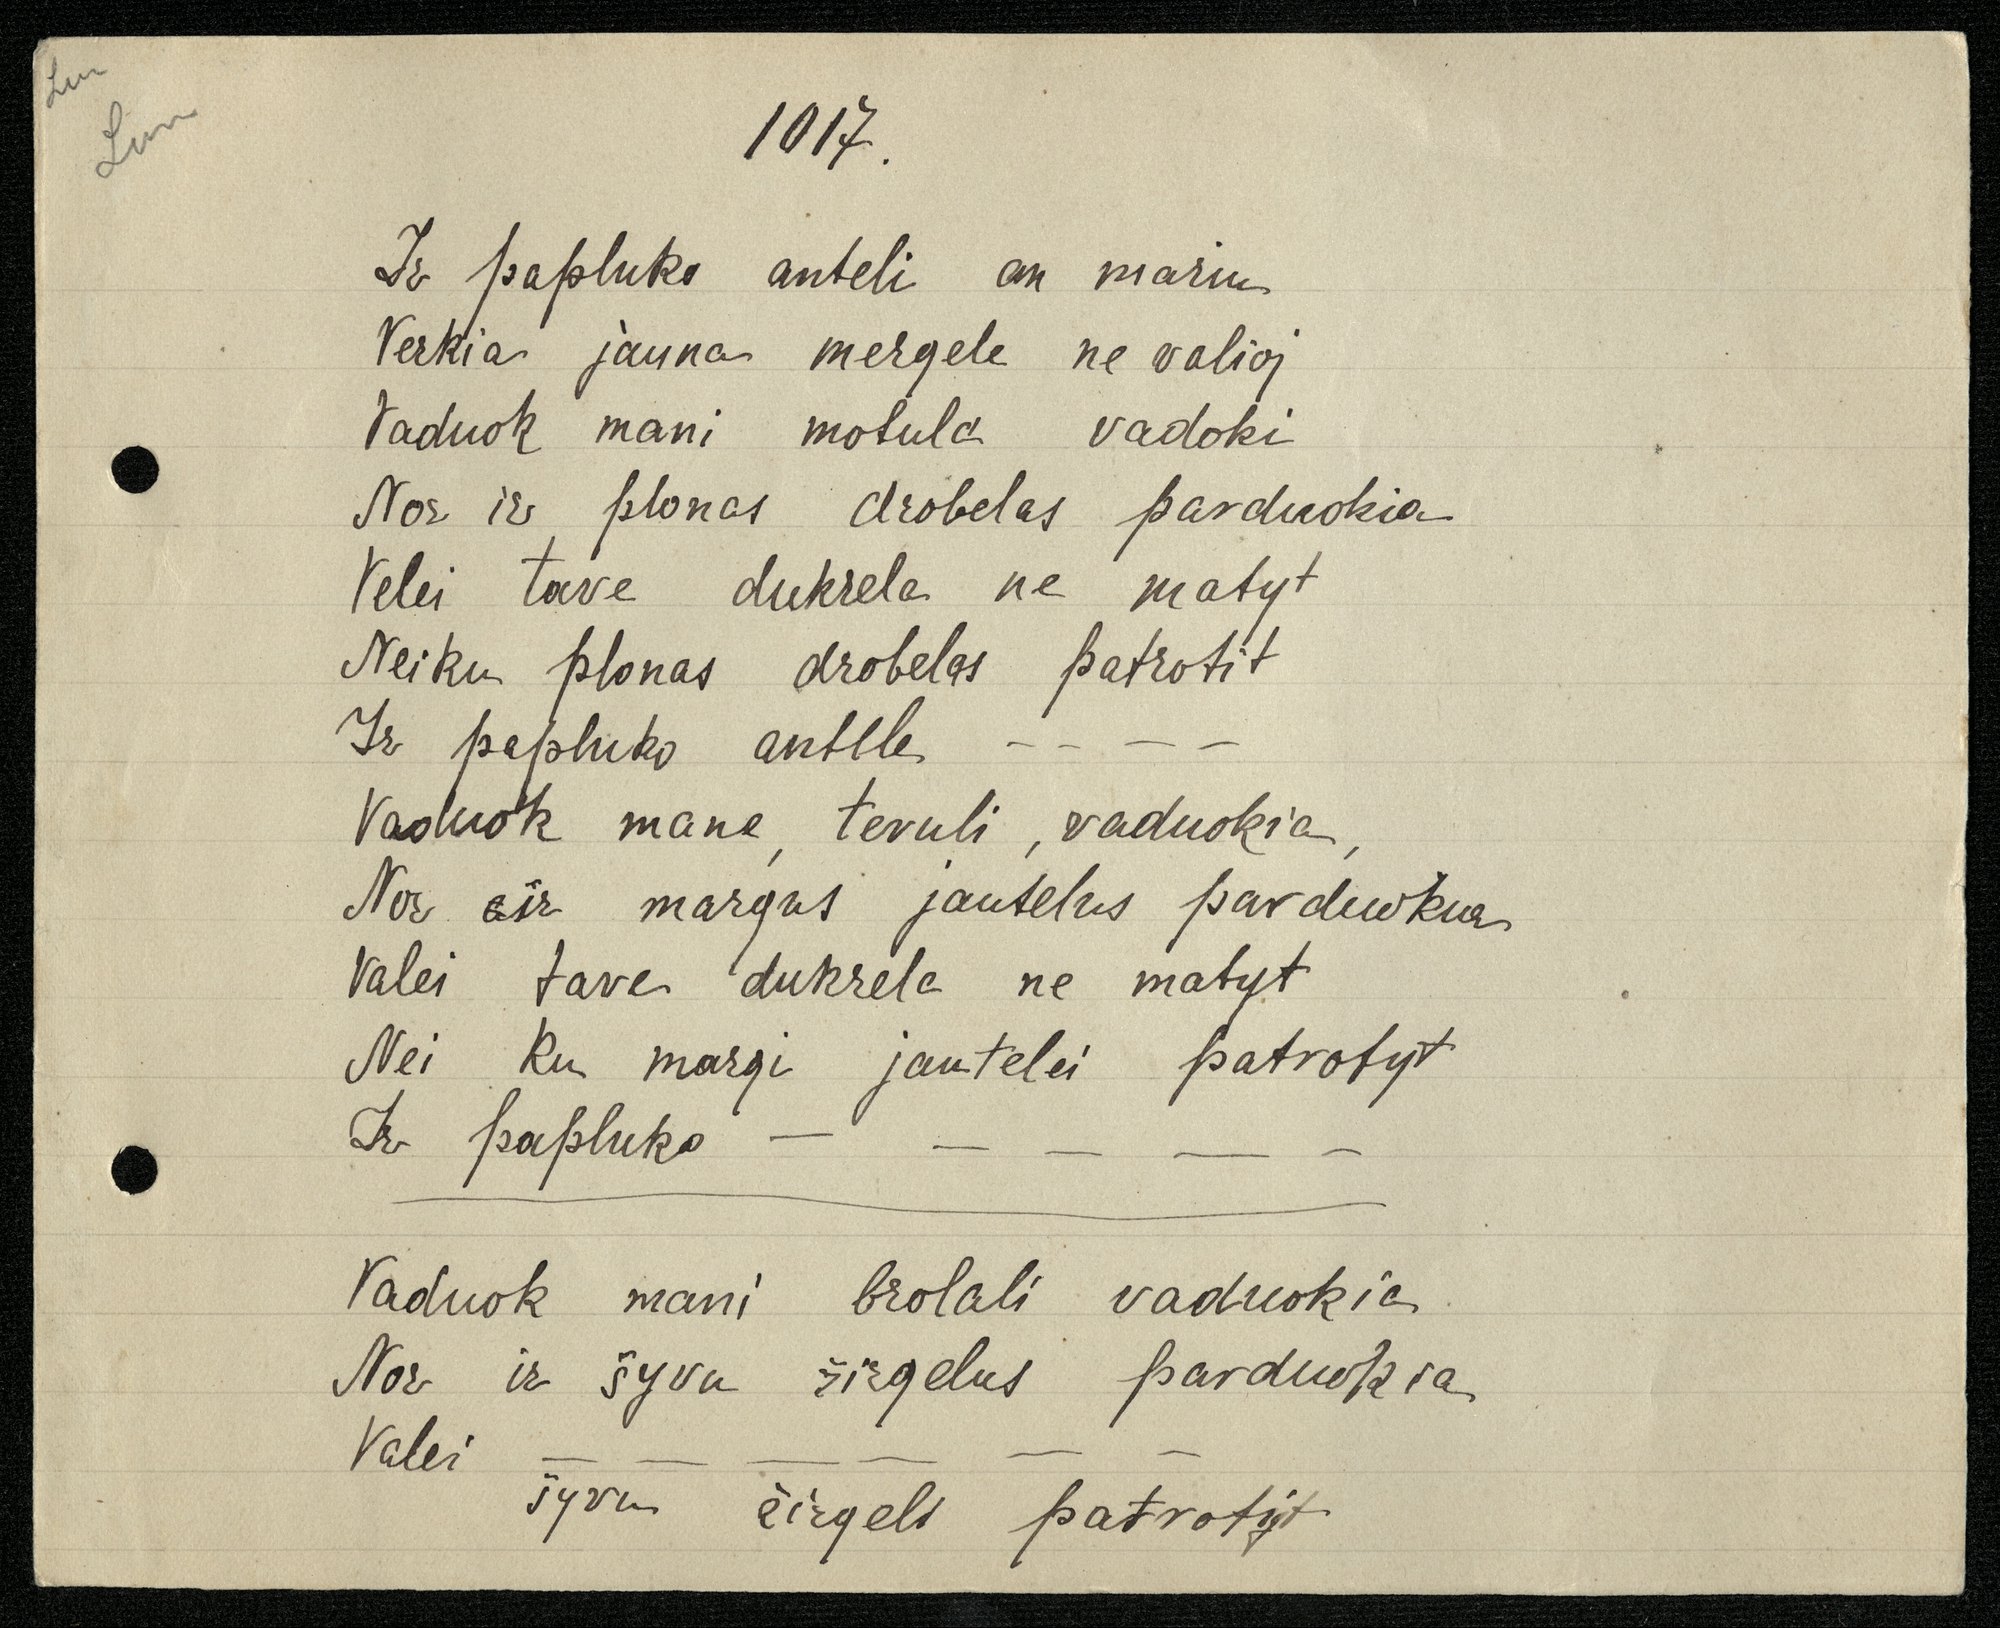 1017.
Ir papluko anteli an mariu
Verkia jauna mergele ne valioj
Vaduok mani motula vadoki
Nor ir plonas drobelas parduokia
Velei tave dukrela ne matyt
Neiku plonas drobelas patrotit
Ir papluko antele - - - -
Vaduok mane, tevuli, vaduokia,
Nor ir margus jautelus parduokia
Valei tave dukrela ne matyt
Nei ku margi jautelei patrotyt
Ir papluko - - - - -
Vaduok mani brolali vaduokia
Nor ir šyvu žirgelus parduokia
Valei - - - - - -
šyvu žirgels patrotyt